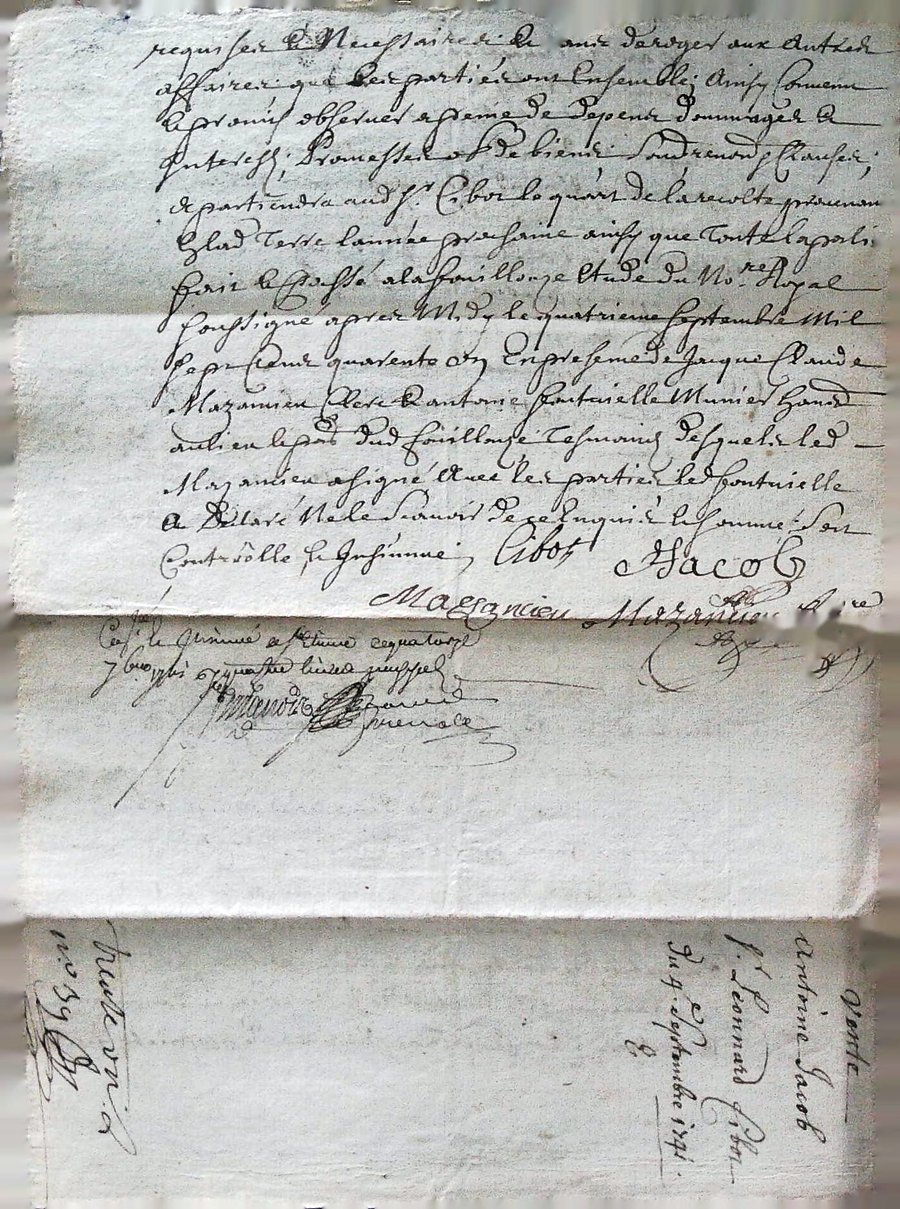 requises & Necessaires & sans deroger aux Autres
affaires que les parties ont Ensemble; Ainsy Convenu
& promis observer a peine de depens dommages &
Interests; Promesses de biens Clauses;
apartiendra aud Sr. Cibot le quart de la recolte
lad Terre l'année prochaine ainsy que Toute la
fait & Passé a la fouillouze Etude du No.re Royal
soussigné apres Midy le quatrieme septembre Mil
sept Cens quarente un En presence de Jacque Claude
Mazancieu Clerc & antoine fontvielle Munier
au lieu & pss dud fouillouze Tesmoins desquels led
Mazancieu a signé Avec les parties led fontvielle
a Declaré Ne le Scavoir de ce Enquis & sommé Sera
Controllé & Insinué
Cibot Jacob
Mazancieu Mazancieu
Con.lé & Insinué a St Etienne ce quatorze
7bre 1741
Vente
Antoine Jacob
Sr. Leonnard Cibot
du 4. Septembre 1741.
trente un
no 39